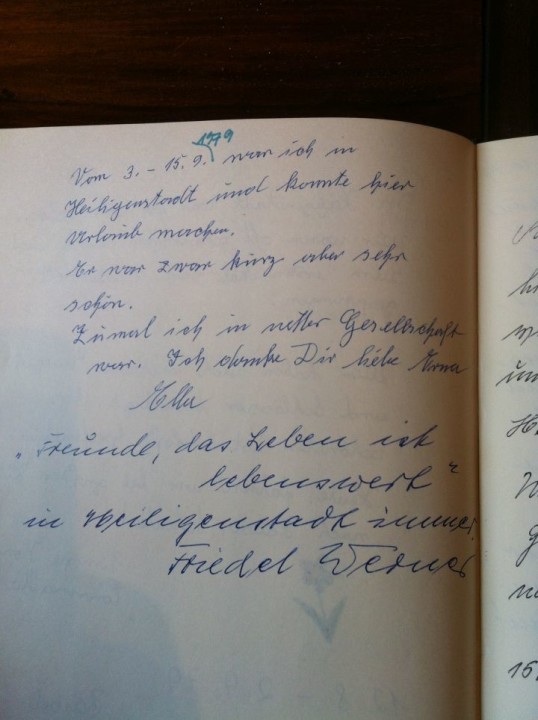 1979
Vom 3. - 15. 9. war ich in
Heiligenstadt und konnte hier
Urlaub machen.
Er war zwar kurz aber sehr
schön.
Zumal ich in netter Gesellschaft
war. Ich danke Dir liebe Erna
Ella
"Freunde, das Leben ist
lebenswert"
in Heiligenstadt immer.
Friedel Werner
15.